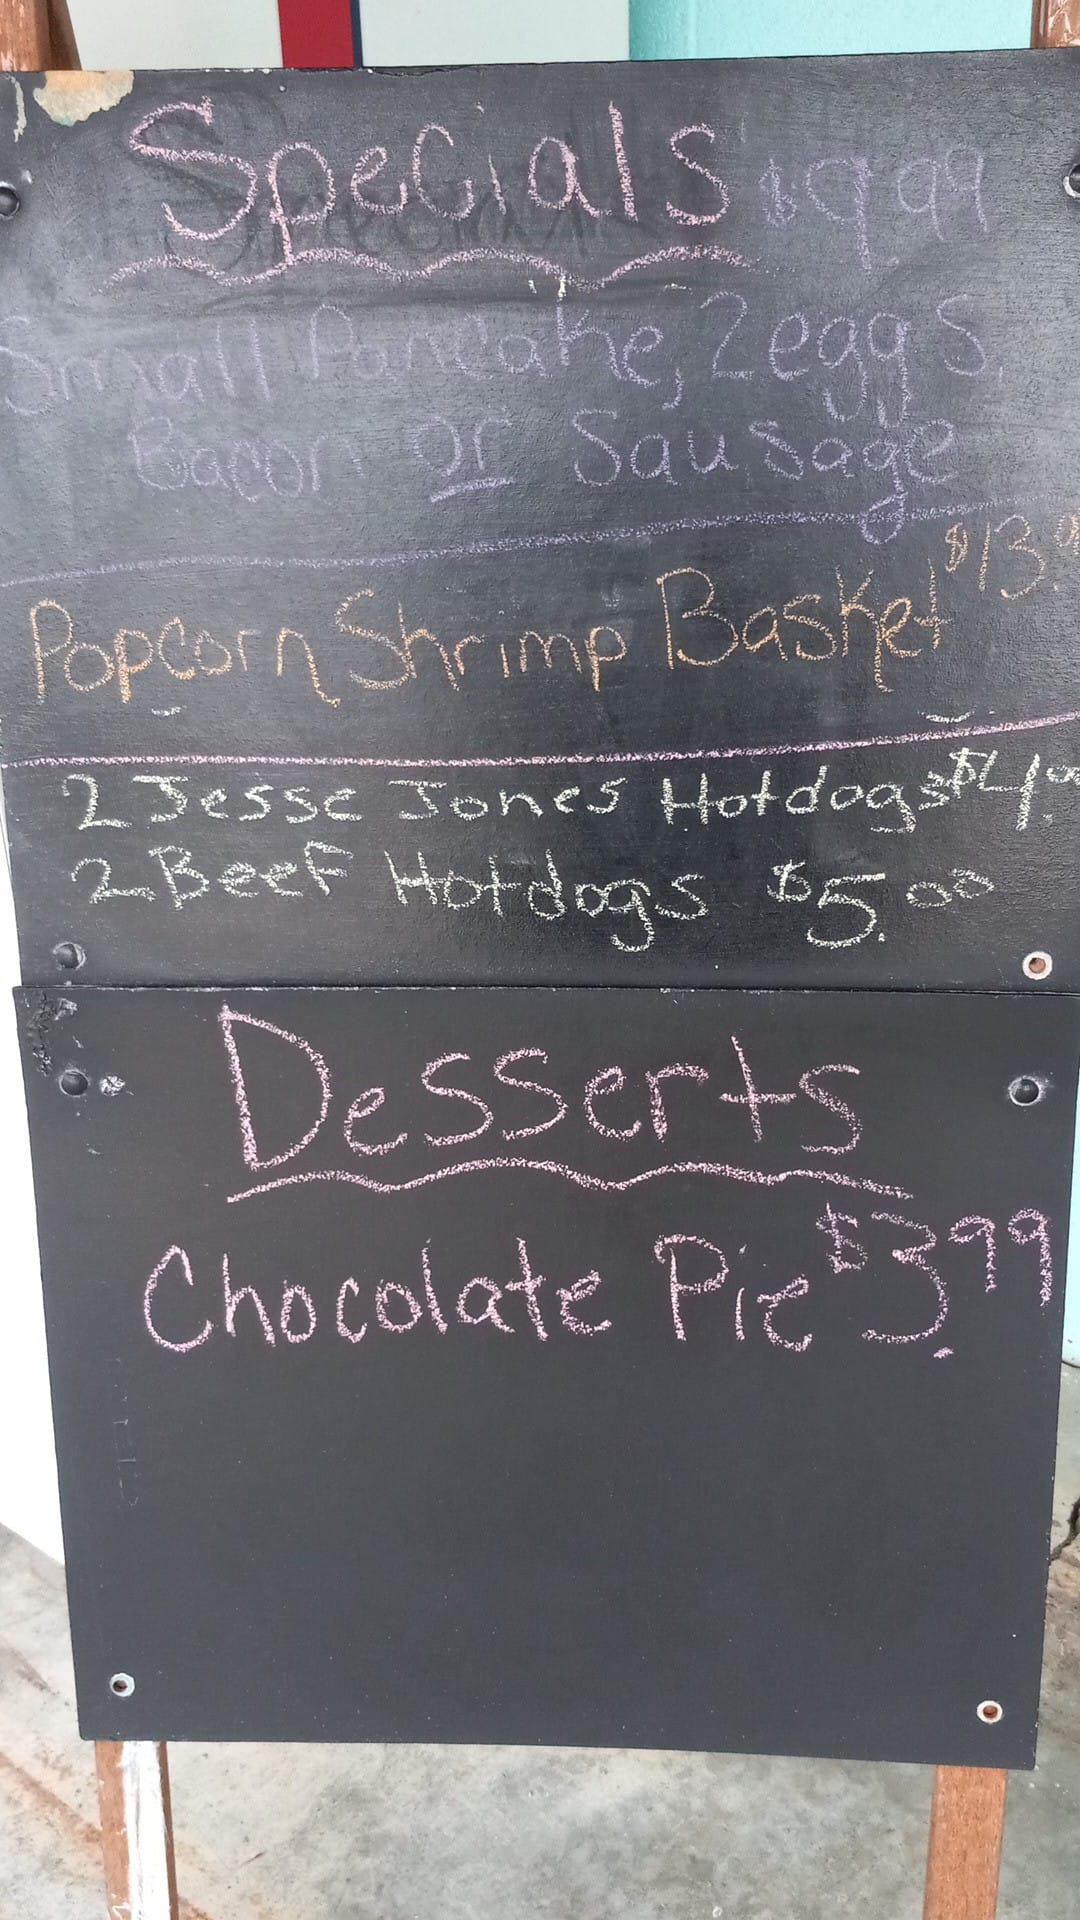 Specials $9.99
Small Pancake, 2 eggs,
Bacon or Sausage
Popcorn Shrimp Basket $13.
2 Jesse Jones Hotdogs $4.00
2 Beef Hotdogs $5.00
Desserts
Chocolate Pie $3.99